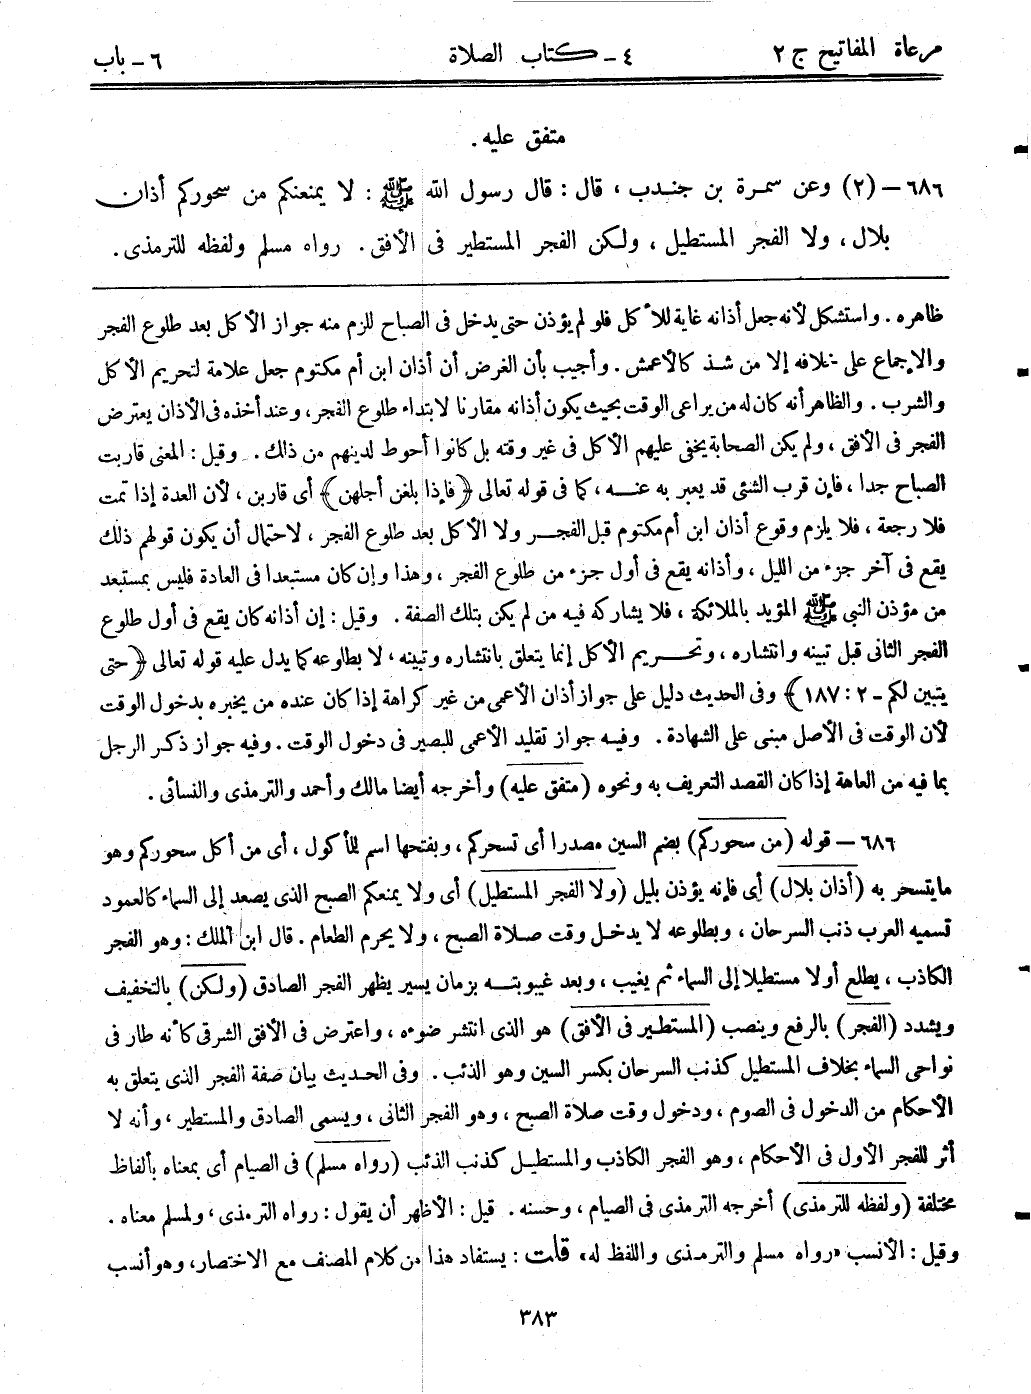 مرعاة المفاتيح ج ٢ ٤ - كتاب الصلاة ٦ - باب
متفق عليه .
٦٨٦ – (٢) وعن سمرة بن جندب ، قال : قال رسول الله ﷺ : لا يمنعنكم من سحوركم أذان
بلال ، ولا الفجر المستطيل ، ولكن الفجر المستطير فى الأفق . رواه مسلم ولفظه للترمذى .
ظاهره . واستشكل لأنه جعل أذانه غاية للأكل فلو لم يؤذن حتى يدخل فى الصباح للزم منه جواز الأكل بعد طلوع الفجر
والإجماع على خلافه إلا من شذ كالأعمش . وأجيب بأن الغرض أن أذان ابن أم مكتوم جعل علامة لتحريم الأكل
والشرب . والظاهر أنه كان له من يراعى الوقت بحيث يكون أذانه مقارنا لابتداء طلوع الفجر، وعند أخذه فى الأذان يعترض
الفجر فى الأفق ، ولم يكن الصحابة يخفى عليهم الأكل فى غير وقته بل كانوا أحوط لدينهم من ذلك . وقيل : المعنى قاربت
الصباح جدا ، فإن قرب الشئى قد يعبر به عنه ، كما فى قوله تعالى ﴿ فإذا بلغن أجلهن ﴾ أى قاربن ، لأن العدة إذا تمت
فلا رجعة ، فلا يلزم وقوع أذان ابن أم مكتوم قبل الفجر ولا الأكل بعد طلوع الفجر ، لاحتمال أن يكون قولهم ذلك
يقع فى آخر جزء من الليل ، وأذانه يقع فى أول جزء من طلوع الفجر ، وهذا وإن كان مستبعدا فى العادة فليس بمستبعد
من مؤذن النبى ﷺ المؤيد بالملائكة ، فلا يشاركه فيه من لم يكن بتلك الصفة . وقيل : إن أذانه كان يقع فى أول طلوع
الفجر الثانى قبل تبينه وانتشاره ، وتحريم الأكل إنما يتعلق بانتشاره وتبينه ، لا بطلوعه كما يدل عليه قوله تعالى ﴿ حتى
يتبين لكم - ٢ : ١٨٧ ﴾ وفى الحديث دليل على جواز أذان الأعمى من غير كراهة إذا كان عنده من يخبره بدخول الوقت
لأن الوقت فى الأصل مبنى على الشهادة . وفيه جواز تقليد الأعمى للبصير فى دخول الوقت . وفيه جواز ذكر الرجل
بما فيه من العاهة إذا كان القصد التعريف به ونحوه (متفق عليه) وأخرجه أيضا مالك وأحمد والترمذى والنسائى .
٦٨٦ – قوله (من سحوركم) بضم السين مصدرا أى تسحركم ، وبفتحها اسم للمأكول ، أى من أكل سحوركم وهو
ما يتسحر به (أذان بلال) أى فإنه يؤذن بليل (ولا الفجر المستطيل) أى ولا يمنعكم الصبح الذى يصعد إلى السماء كالعمود
تسميه العرب ذنب السرحان ، وبطلوعه لا يدخل وقت صلاة الصبح ، ولا يحرم الطعام . قال ابن الملك : وهو الفجر
الكاذب ، يطلع أولا مستطيلا إلى السماء ثم يغيب ، وبعد غيبوبته بزمان يسير يظهر الفجر الصادق (ولكن) بالتخفيف
ويشدد (الفجر) بالرفع وينصب (المستطير فى الأفق) هو الذى انتشر ضوءه ، واعترض فى الأفق الشرقى كأنه طار فى
نواحى السماء بخلاف المستطيل كذنب السرحان بكسر السين وهو الذئب . وفى الحديث بيان صفة الفجر الذى يتعلق به
الأحكام من الدخول فى الصوم ، ودخول وقت صلاة الصبح ، وهو الفجر الثانى ، ويسمى الصادق والمستطير ، وأنه لا
أثر للفجر الأول فى الأحكام ، وهو الفجر الكاذب والمستطيل كذنب الذئب (رواه مسلم) فى الصيام أى بمعناه بألفاظ
مختلفة (ولفظه للترمذى) أخرجه الترمذى فى الصيام ، وحسنه . قيل : الأظهر أن يقول : رواه الترمذى ، ولمسلم معناه .
وقيل : الأنسب «رواه مسلم والترمذى واللفظ له» قلت : يستفاد هذا من كلام المصنف مع الاختصار، وهو أنسب
٣٨٣